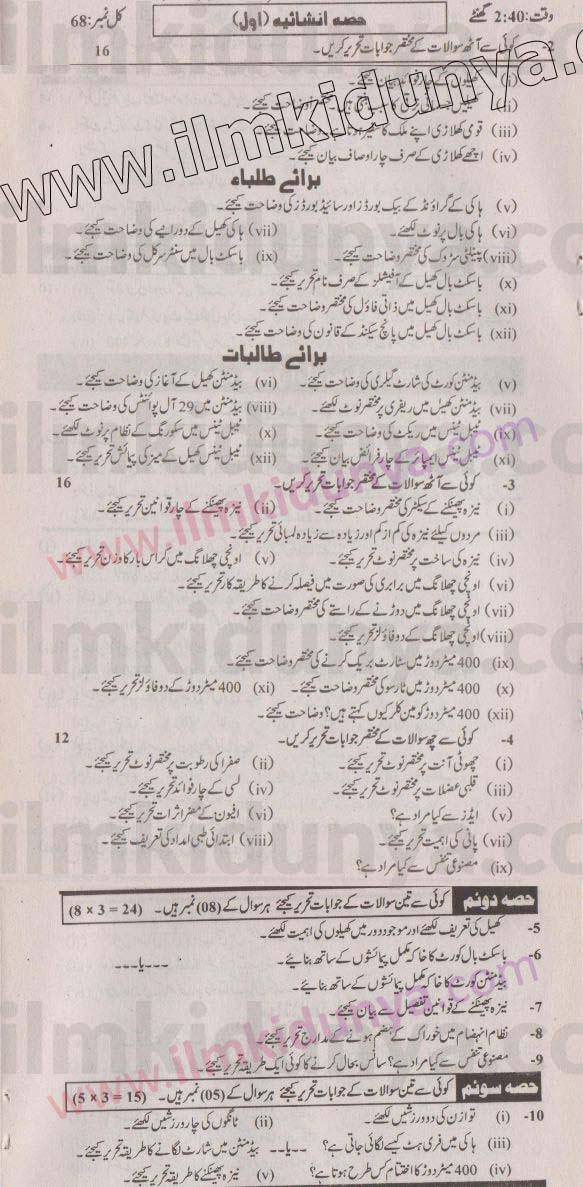 وقت: 2:40 گھنٹے حصہ انشائیہ (اول) کل نمبر: 68
2- کوئی سے آٹھ سوالات کے مختصر جوابات تحریر کریں۔ 16
(i) بیان کیجئے۔
(ii) وضاحت کیجئے۔
(iii) قومی کھلاڑی اپنے ملک کا سفیر ہوتا ہے۔ وضاحت کیجئے۔
(iv) اچھے کھلاڑی کے صرف چار اوصاف بیان کیجئے۔
برائے طلباء
(v) ہاکی کے گراؤنڈ کے بیک بورڈز اور سائیڈ بورڈز کی وضاحت کیجئے۔
(vi) ہاکی بال پر نوٹ لکھئے۔ (vii) ہاکی کھیل کے دورانیے کی وضاحت کیجئے۔
(viii) پینلٹی سڑوک کی مختصر وضاحت کیجئے۔ (ix) باسکٹ بال میں سنٹر سرکل کی وضاحت کیجئے۔
(x) باسکٹ بال کھیل کے آفیشلز کے صرف نام تحریر کیجئے۔
(xi) باسکٹ بال کھیل میں ذاتی فاؤل کی مختصر وضاحت کیجئے۔
(xii) باسکٹ بال کھیل میں پانچ سیکنڈ کے قانون کی وضاحت کیجئے۔
برائے طالبات
(v) بیڈمنٹن کورٹ کی شارٹ گیلری کی وضاحت کیجئے۔ (vi) بیڈمنٹن کھیل کے آغاز کی وضاحت کیجئے۔
(vii) بیڈمنٹن کھیل میں ریفری پر مختصر نوٹ لکھئے۔ (viii) بیڈمنٹن میں 29 آل پوائنٹس کی وضاحت کیجئے۔
(ix) ٹیبل ٹینس میں ریکٹ کی وضاحت کیجئے۔ (x) ٹیبل ٹینس میں سکورنگ کے نظام پر نوٹ لکھئے۔
(xi) ٹیبل ٹینس ایمپائر کے چار فرائض بیان کیجئے۔ (xii) ٹیبل ٹینس کھیل کے میز کی پیمائش تحریر کیجئے۔
3- کوئی سے آٹھ سوالات کے مختصر جوابات تحریر کریں۔ 16
(i) نیزہ پھینکنے کے سیکٹر کی مختصر وضاحت کیجئے۔ (ii) نیزہ پھینکنے کے چار قوانین تحریر کیجئے۔
(iii) مردوں کیلئے نیزہ کی کم از کم اور زیادہ سے زیادہ لمبائی تحریر کیجئے۔
(iv) نیزہ کی ساخت پر مختصر نوٹ تحریر کیجئے۔ (v) اونچی چھلانگ میں کراس بار کا وزن تحریر کیجئے۔
(vi) اونچی چھلانگ میں برابری کی صورت میں فیصلہ کرنے کا طریقہ کار تحریر کیجئے۔
(vii) اونچی چھلانگ میں دوڑنے کے راستے کی مختصر وضاحت کیجئے۔
(viii) اونچی چھلانگ کے دو فاؤلز تحریر کیجئے۔
(ix) 400 میٹر دوڑ میں سٹارٹ بریک کرنے کی مختصر وضاحت کیجئے۔
(x) 400 میٹر دوڑ میں ٹارسو کی مختصر وضاحت کیجئے۔ (xi) 400 میٹر دوڑ کے دو فاؤلز تحریر کیجئے۔
(xii) 400 میٹر دوڑ کو مین کلر کیوں کہتے ہیں؟ وضاحت کیجئے۔
4- کوئی سے چھ سوالات کے مختصر جوابات تحریر کریں۔ 12
(i) چھوٹی آنت پر مختصر نوٹ تحریر کیجئے۔ (ii) صفرا کی رطوبت پر مختصر نوٹ تحریر کیجئے۔
(iii) قلبی عضلات پر مختصر نوٹ تحریر کیجئے۔ (iv) لسی کے چار فوائد تحریر کیجئے۔
(v) ایڈز سے کیا مراد ہے؟ (vi) افیون کے مضر اثرات تحریر کیجئے۔
(vii) پانی کی اہمیت تحریر کیجئے۔ (viii) ابتدائی طبی امداد کی تعریف کیجئے۔
(ix) مصنوعی تنفس سے کیا مراد ہے؟
حصہ دوئم کوئی سے تین سوالات کے جوابات تحریر کیجئے ہر سوال کے (08) نمبر ہیں۔ (8 × 3 = 24)
5- کھیل کی تعریف لکھئے اور موجودہ دور میں کھیلوں کی اہمیت لکھئے۔
6- باسکٹ بال کورٹ کا خاکہ مکمل پیمائشوں کے ساتھ بنائیے۔ ---یا---
بیڈمنٹن کورٹ کا خاکہ مکمل پیمائشوں کے ساتھ بنائیے۔
7- نیزہ پھینکنے کے قوانین تفصیل سے بیان کیجئے۔
8- نظام انہضام میں خوراک کے ہضم ہونے کے مدارج تحریر کیجئے۔
9- مصنوعی تنفس سے کیا مراد ہے؟ سانس بحال کرنے کا کوئی ایک طریقہ تحریر کیجئے۔
حصہ سوئم کوئی سے تین سوالات کے جوابات تحریر کیجئے ہر سوال کے (05) نمبر ہیں۔ (5 × 3 = 15)
10- (i) توازن کی دو ورزشیں لکھئے۔ (ii) ٹانگوں کی چار ورزشیں لکھئے۔
(iii) ہاکی میں فری ہٹ کیسے لگائی جاتی ہے؟ ---یا--- بیڈمنٹن میں شارٹ لگانے کا طریقہ تحریر کیجئے۔
(iv) 400 میٹر دوڑ کا اختتام کس طرح ہوتا ہے؟ (v) نیزہ پھینکنے کا طریقہ تحریر کیجئے۔
www.ilmkidunya.com